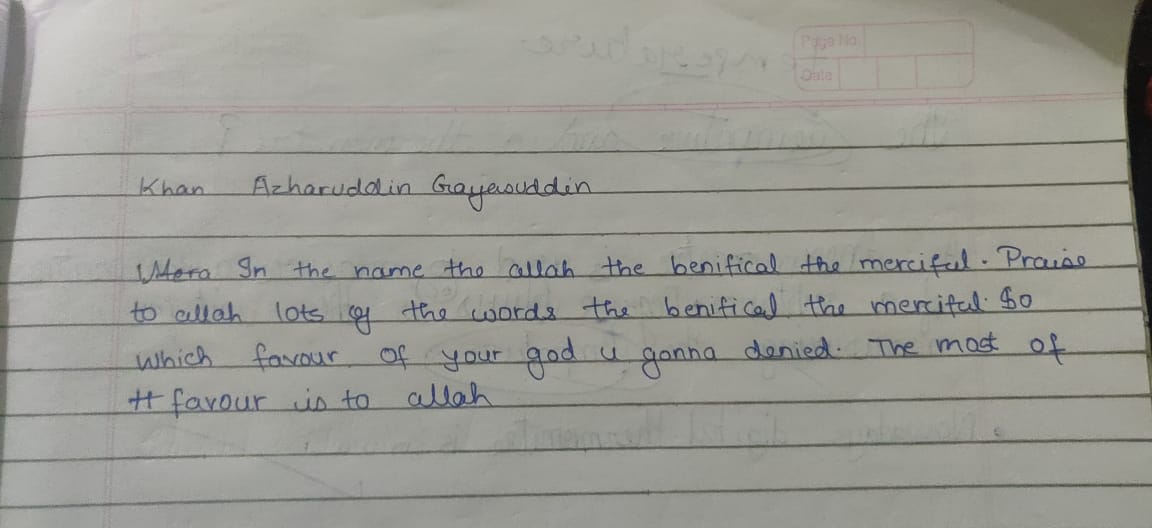 Page No.
Date
Khan Azharuddin Gayasuddin
Mera In the name the allah the benifical the merciful. Praise
to allah lots of the words the benifical the merciful. So
which favour of your god u gonna denied. The most of
favour is to allah